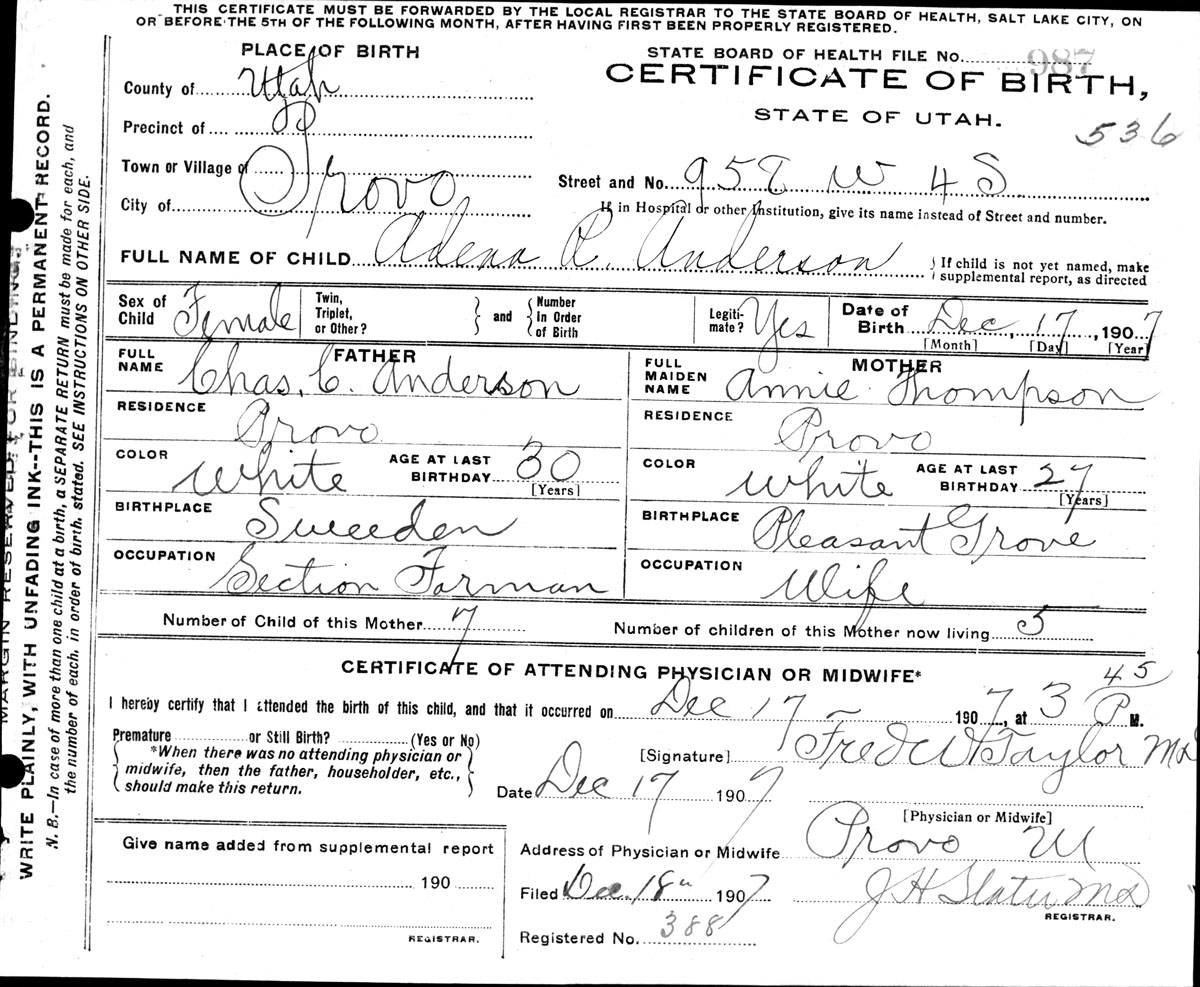 THIS CERTIFICATE MUST BE FORWARDED BY THE LOCAL REGISTRAR TO THE STATE BOARD OF HEALTH, SALT LAKE CITY, ON
OR BEFORE THE 5TH OF THE FOLLOWING MONTH, AFTER HAVING FIRST BEEN PROPERLY REGISTERED.
PLACE OF BIRTH
County of Utah
Precinct of
Town or Village of
City of Provo
STATE BOARD OF HEALTH FILE No. 987
CERTIFICATE OF BIRTH,
STATE OF UTAH.
536
Street and No. 958 W 4 S
If in Hospital or other Institution, give its name instead of Street and number.
FULL NAME OF CHILD Adena R. Anderson
If child is not yet named, make
supplemental report, as directed
Sex of
Child Female
Twin,
Triplet,
or Other?
and
Number
in Order
of Birth
Legiti-
mate? Yes
Date of
Birth Dec, 17, 1907
[Month] [Day] [Year]
FATHER
FULL
NAME Chas. C. Anderson
RESIDENCE Provo
COLOR White AGE AT LAST
BIRTHDAY 30
[Years]
BIRTHPLACE Sweeden
OCCUPATION Section Forman
MOTHER
FULL
MAIDEN
NAME Annie Thompson
RESIDENCE Provo
COLOR White AGE AT LAST
BIRTHDAY 27
[Years]
BIRTHPLACE Pleasant Grove
OCCUPATION Wife
Number of Child of this Mother 7 Number of children of this Mother now living 5
CERTIFICATE OF ATTENDING PHYSICIAN OR MIDWIFE*
I hereby certify that I attended the birth of this child, and that it occurred on Dec 17 1907, at 3 45 P M.
Premature or Still Birth? (Yes or No)
*When there was no attending physician or
midwife, then the father, householder, etc.,
should make this return.
[Signature] Fred W Taylor MD
Date Dec 17 1907
[Physician or Midwife]
Give name added from supplemental report
190
REGISTRAR.
Address of Physician or Midwife Provo U
Filed Dec. 18" 1907 J H Slater MD
REGISTRAR.
Registered No. 388
MARGIN RESERVED FOR BINDING
WRITE PLAINLY, WITH UNFADING INK--THIS IS A PERMANENT RECORD.
N. B.—In case of more than one child at a birth, a SEPARATE RETURN must be made for each, and
the number of each, in order of birth, stated. SEE INSTRUCTIONS ON OTHER SIDE.